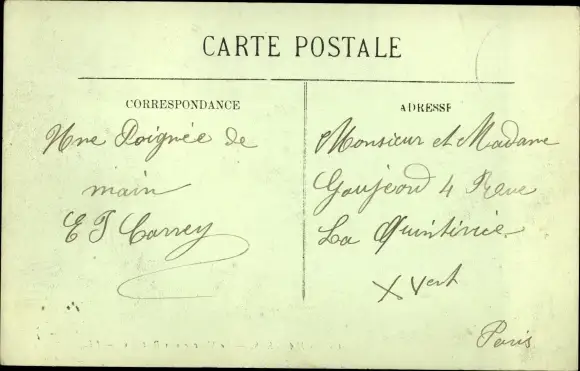 CARTE POSTALE
CORRESPONDANCE
Une Poignée de
main
E J Carrey
ADRESSE
Monsieur et Madame
Goujeord 4 Rue
La Quintinie
X Vert
Paris